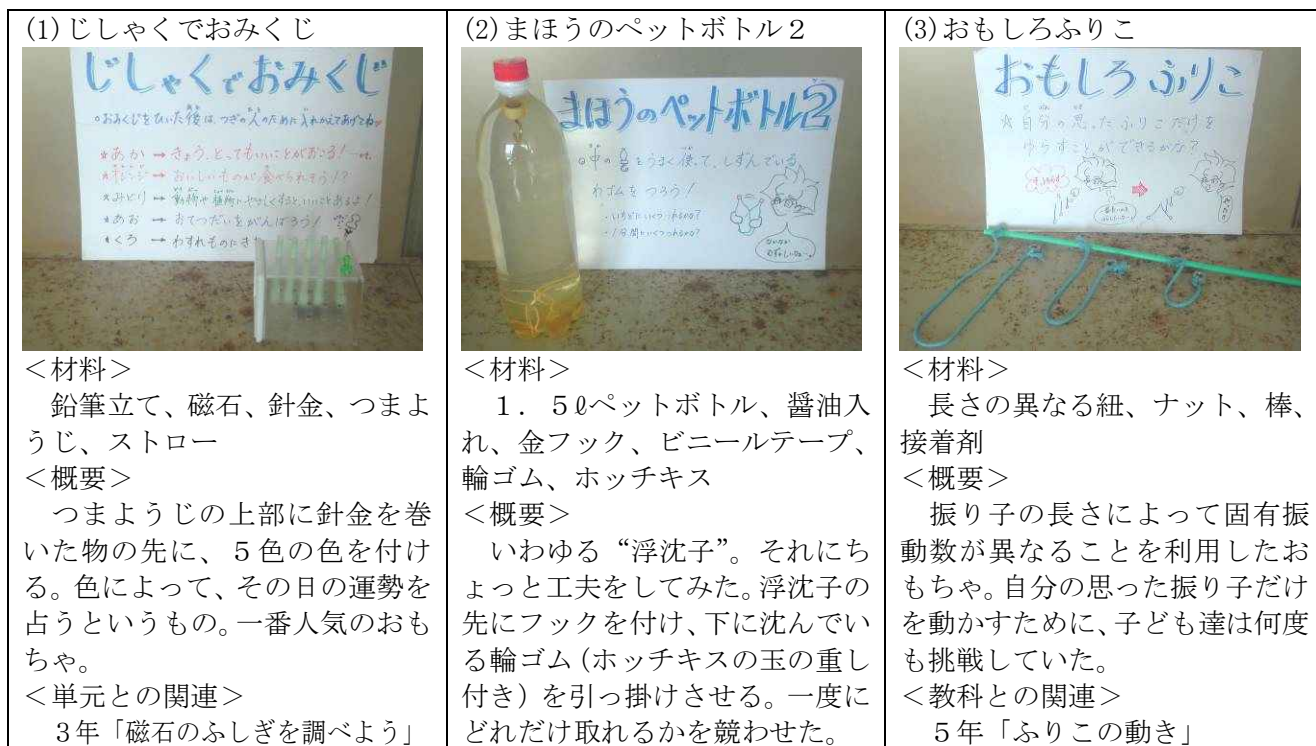 (1)じしゃくでおみくじ
じしゃくでおみくじ
○おみくじをひいた後は、つぎの人のために入れかえてあげてね。
★あか → きょう、とってもいいことがおこる!
★オレンジ → おいしいものが食べられそう!?
★みどり → 動物や植物にやさしくすると、いいことあるよ!
★あお → おてつだいをがんばろう!
★くろ → わすれものにき
<材料>
鉛筆立て、磁石、針金、つまよ
うじ、ストロー
<概要>
つまようじの上部に針金を巻
いた物の先に、5色の色を付け
る。色によって、その日の運勢を
占うというもの。一番人気のおも
ちゃ。
<単元との関連>
3年「磁石のふしぎを調べよう」
(2)まほうのペットボトル2
まほうのペットボトル2
わゴムをつろう!
<材料>
1.5ℓペットボトル、醤油入
れ、金フック、ビニールテープ、
輪ゴム、ホッチキス
<概要>
いわゆる“浮沈子”。それにち
ょっと工夫をしてみた。浮沈子の
先にフックを付け、下に沈んでい
る輪ゴム(ホッチキスの玉の重し
付き)を引っ掛けさせる。一度に
どれだけ取れるかを競わせた。
(3)おもしろふりこ
おもしろふりこ
☆自分の思ったふりこだけを
ゆらすことができるかな?
<材料>
長さの異なる紐、ナット、棒、
接着剤
<概要>
振り子の長さによって固有振
動数が異なることを利用したお
もちゃ。自分の思った振り子だけ
を動かすために、子ども達は何度
も挑戦していた。
<教科との関連>
5年「ふりこの動き」